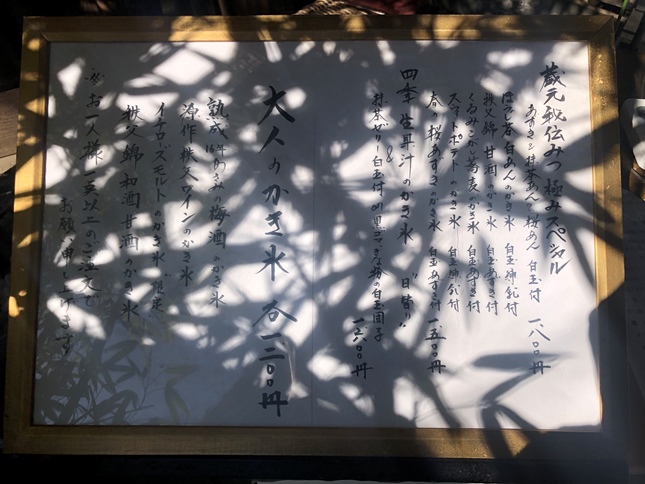 蔵元秘伝みつ 極みスペシャル
あずき 抹茶あん 桜あん 白玉付 一、八〇〇円
白あんのかき氷 白玉練乳付
秩父錦 甘酒のかき氷 白玉あずき付
かき氷 白玉あずき付
スイートポテトのかき氷 白玉練乳付
春の桜あずきのかき氷 白玉あずき付 一、五〇〇円
四季 生果汁のかき氷 "日替り"
抹茶ゼリー白玉付 きな粉の白玉団子
一、六〇〇円
大人のかき氷 各一、三〇〇円
熟成 梅酒のかき氷
源作 秩父ワインのかき氷
イチローズモルトのかき氷 限定
秩父錦 和酒 甘酒のかき氷
※お一人様一点以上のご注文で
お願い申し上げます